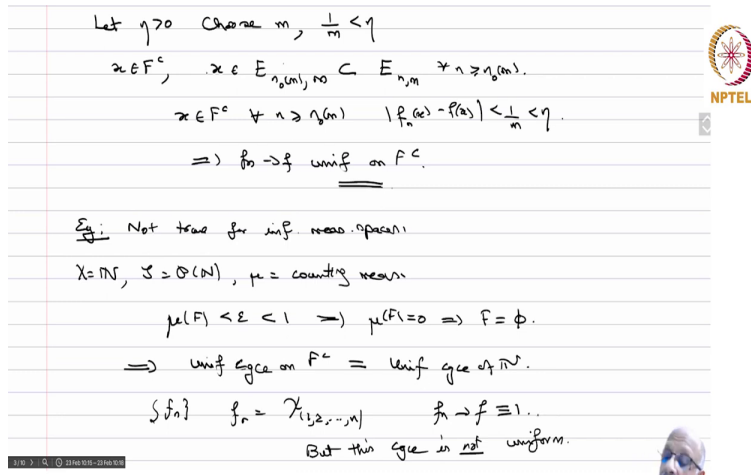 Let η>0 Choose m, 1/m < η
x ∈ F^c, x ∈ E_{n_0(m), m} ⊂ E_{n,m} ∀ n ≥ n_0(m).
NPTEL
x ∈ F^c ∀ n ≥ n_0(m) |f_n(x) - f(x)| < 1/m < η.
=) f_n → f unif on F^c.
Eg: Not true for inf. meas. spaces.
X = ℕ, S = P(ℕ), μ = counting meas.
μ(F) < ε < 1 =) μ(F) = 0 =) F = ϕ.
=) unif cgce on F^c = unif cgce of ℕ.
{f_n} f_n = χ_{{1,2,...,n}} f_n → f ≡ 1..
But this cgce is not uniform.
3/10 23 Feb 10:15 - 23 Feb 10:16